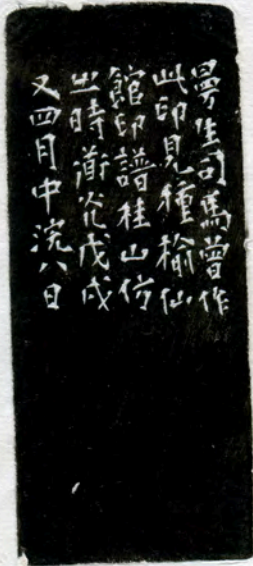 曼生司馬曾作
此印見種榆仙
館印譜桂山仿
之時道光戊戌
又四月中浣八日